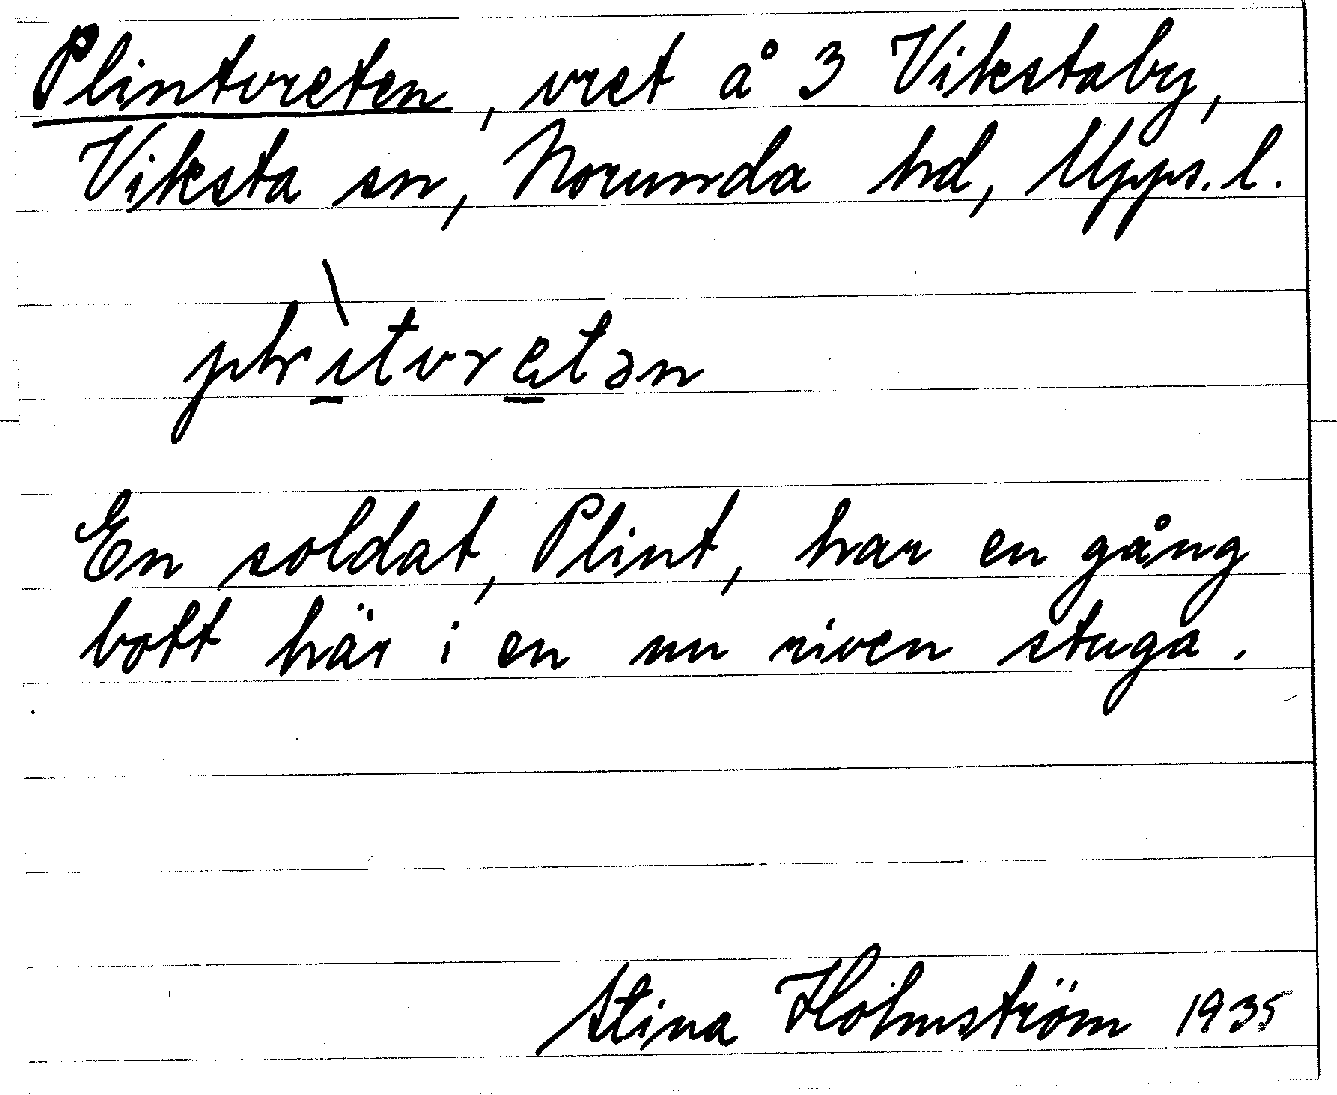 Plintvreten, vret å 3 Vikstaby,
Viksta sn, Norunda hd, Upps. l.
En soldat, Plint, har en gång
bott här i en nu riven stuga.
Stina Holmström 1935